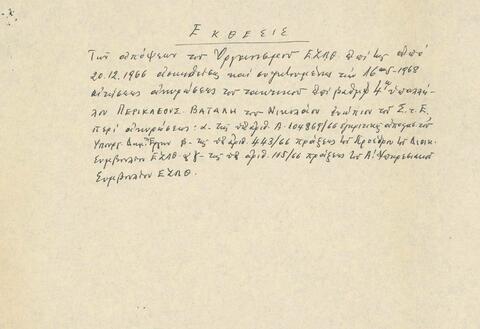 ΕΚΘΕΣΙΣ
Τῶν ἀπόψεων τοῦ Ὀργανισμοῦ ΕΣΠΘ ἐπὶ τῆς ἀπὸ
20.12.1966 ἀσκηθείσης καὶ συζητουμένης τὴν 16 1968
αἰτήσεως ἀκυρώσεως τοῦ τακτικοῦ ἐπὶ βαθμῷ 4ῳ ὑπαλλή-
λου ΠΕΡΙΚΛΕΟΥΣ ΒΑΤΑΛΗ τοῦ Νικολάου ἐνώπιον τοῦ Σ.τ.Ε.
περὶ ἀκυρώσεως: α- τῆς ὑπ' ἀριθ. Α-104869/66 ἐγκριτικῆς ἀποφάσεως τοῦ
Ὑπουργ. Δημ. Ἔργων β- τῆς ὑπ' ἀριθ. 443/66 πράξεως τοῦ Προέδρου τοῦ Διοικ.
Συμβουλίου ΕΣΠΘ γ- τῆς ὑπ' ἀριθ. 115/66 πράξεως τοῦ Α' Ὑπηρεσιακοῦ
Συμβουλίου ΕΣΠΘ.